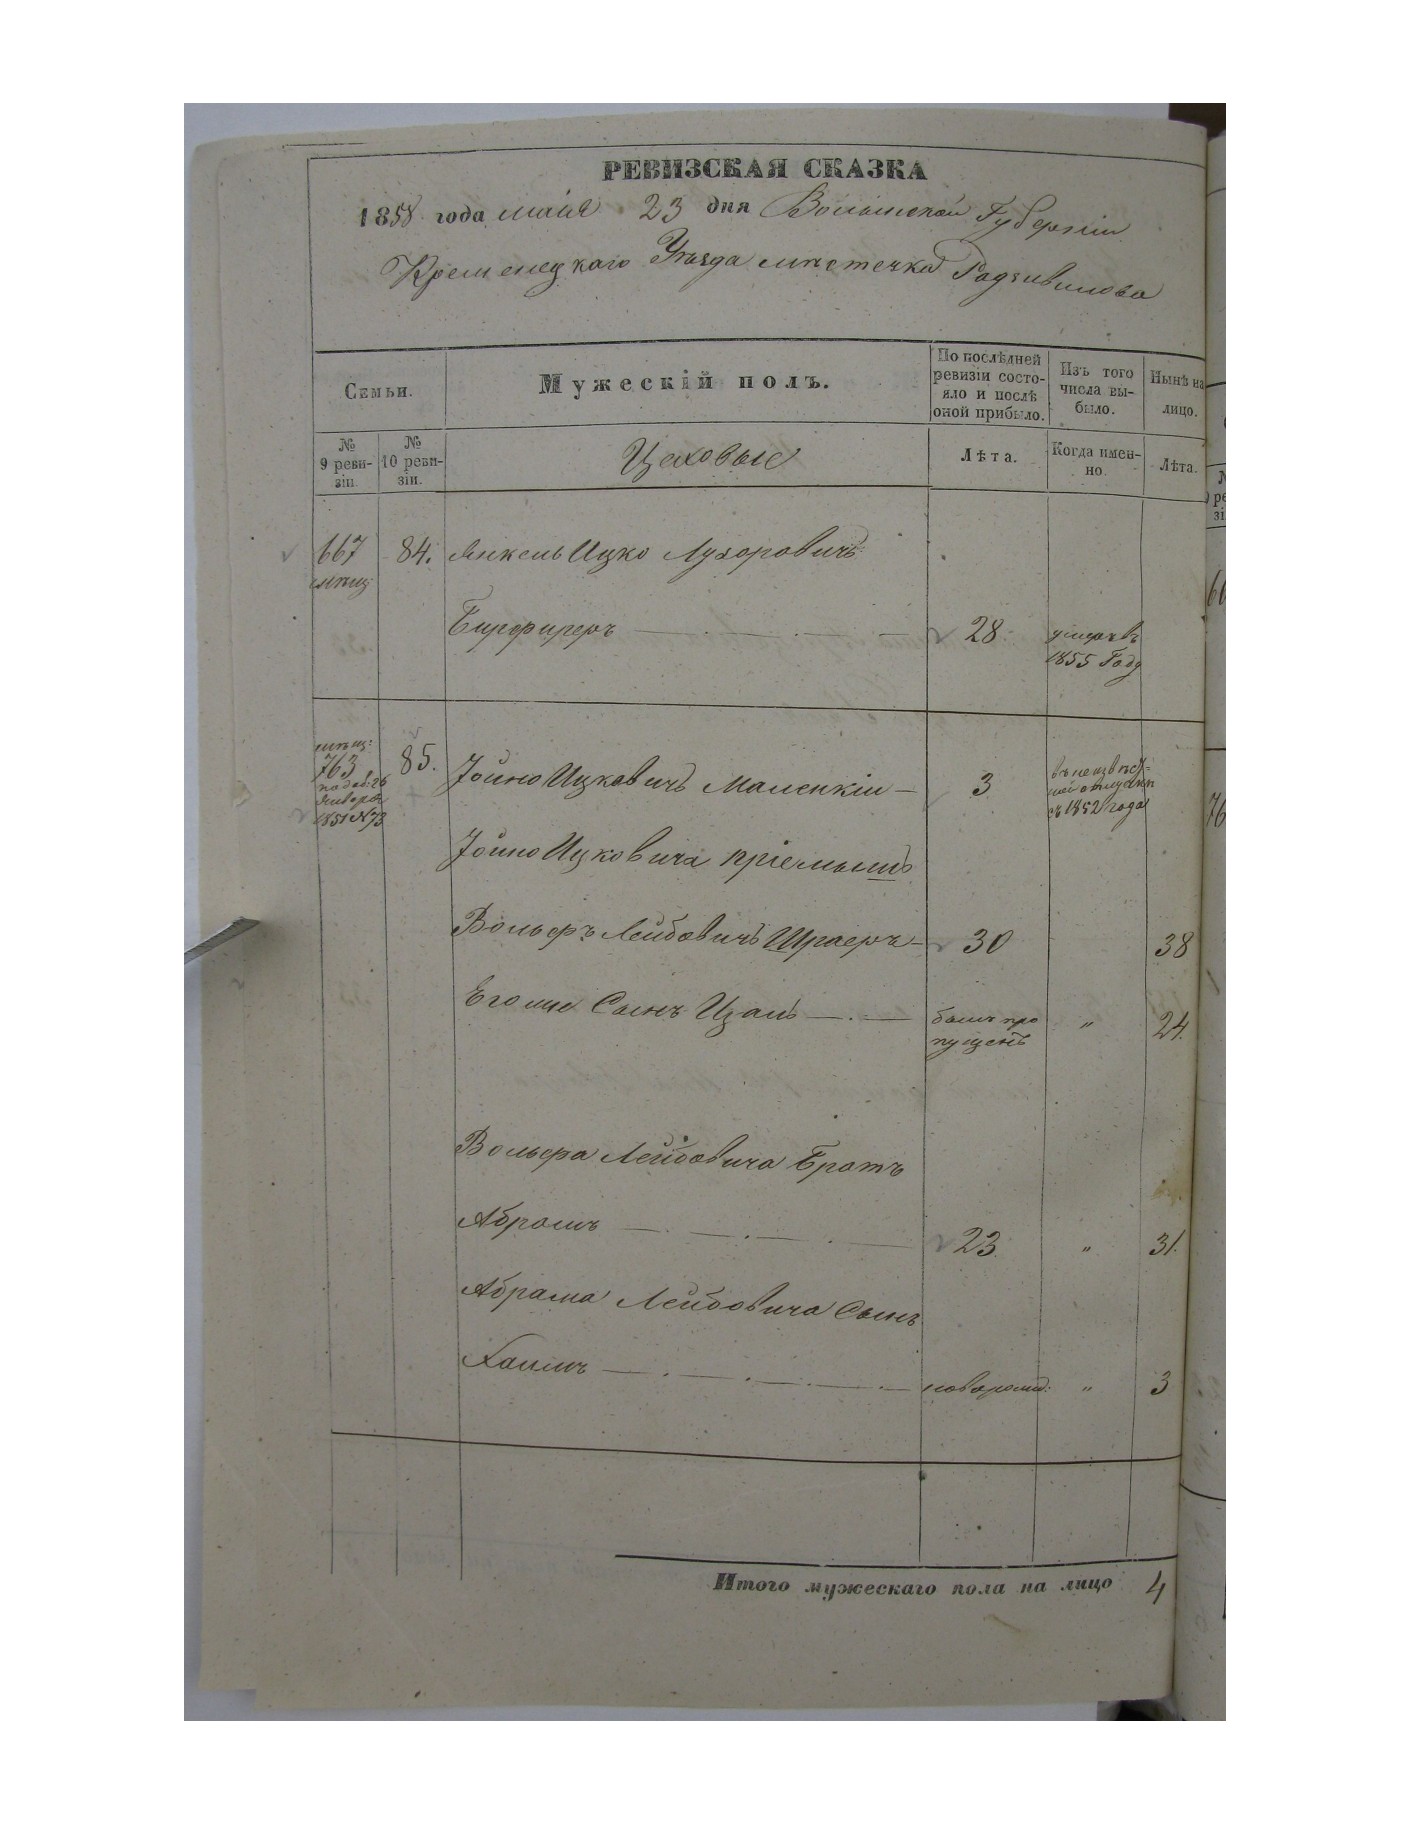 РЕВИЗСКАЯ СКАЗКА
1858 года маія 23 дня Волынской Губерніи
Кременецкаго Уѣзда мѣстечка Радзивилова
Семьи.
Мужескій полъ.
По послѣдней ревизіи состояло и послѣ оной прибыло.
Изъ того числа выбыло.
Нынѣ на лицо.
№ 9 ревизіи.
№ 10 ревизіи.
Цеховые
Лѣта.
Когда именно.
Лѣта.
667 84. Янкель Ицко Лухоровичъ
мѣщ:
Бирфиреръ 28 умеръ въ
1855 Году
мѣщ:
763 85. Іойно Ицковичъ Маленкіи 3 въ неизвѣст-
подав: 26
Января
1851 № 73
ной отлучкѣ
съ 1852 года
Іойно Ицковича пріемышъ
Вольфъ Лейбовичъ Шраеръ 30 38
Его же Сынъ Изакъ былъ про
пущенъ „ 24.
Вольфа Лейбовича Братъ
Абрамъ 23 „ 31.
Абрама Лейбовича Сынъ
Хаимъ новорожд: „ 3
Итого мужескаго пола на лицо 4